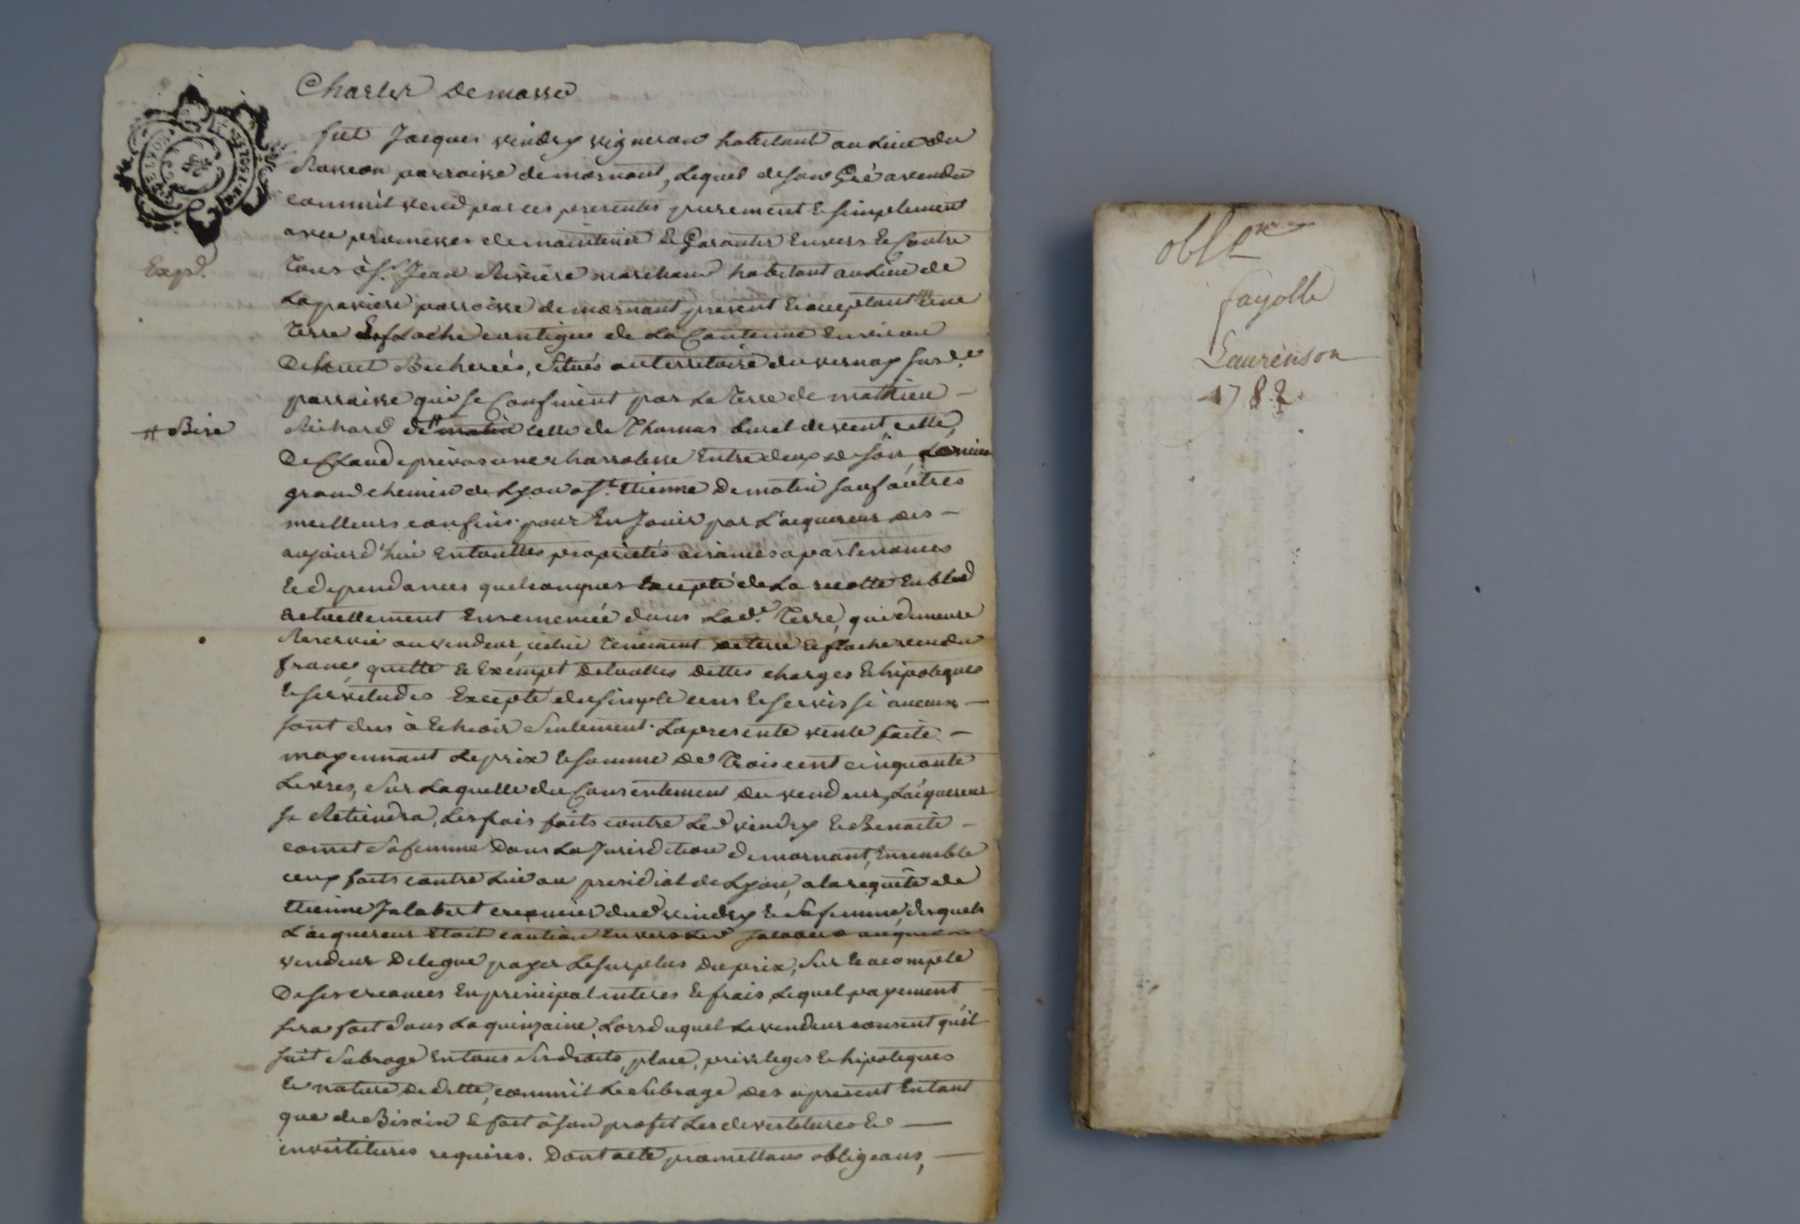 Charles demasso
fut Jacques vindry vigneron habitant au Lieu du
Rosseon parroisse de mornant, Lequel de son Gré a vendu
comm'il vend par ces presentes purement & simplement
avec promesses de maintenir & Garantir Envers & Contre
Tous à Sr. Jean Riviere marchand habitant au Lieu de
Lapaviere parroisse de mornant present & acceptant une
Terre & flache contigus de La Contenue Environ
De huit Bicherées, situés au territoire du vernay sur de.
parroisse qui se Confinent par La Terre de mathieu
Richard de matin celle de Thomas buret de vent, celle
De Claude privas une charrolesse Entre deux de soir, Le
grand chemin de Lyon a St. Etienne De matin sauf autres
meilleurs confins. pour En Jouir par L'acquereur des
aujourd'hui En touttes proprietés aisances apartenances
& dependances quelconques Excepté de La recolte En bled
actuellement Ensemencée dans Lade. Terre, qui demeure
Reservée au vendeur, icelui Tenement de terre & flache vendu
franc, quitte & Exempt De touttes dettes charges & hipoteques
& servitudes Excepté du simple cens & servis si aucuns
sont dus à Echoir Seulement. La presente vente faite
moyennant Le prix & somme De Trois cent cinquante
Livres, sur Laquelle du Consentement du vendeur, L'acquereur
se Retiendra, Les frais faits contre Led vindry & Benoite
cornet sa femme Dans La Jurisdiction de mornant, Ensemble
ceux faits contre Lui au presidial de Lyon, a la requête de
Etienne Jalabert creancier dud vindry & sa femme, desquels
L'acquereur Etoit caution Envers Led Jalabert auquel
vendeur Delegue payer Le surplus du prix, sur & acompte
De ses creances En principal interes & frais, Lequel payement
sera fait dans La quinzaine, Lors duquel Le vendeur consent qu'il
soit subrogé En tous ses droits, place, privileges & hipoteques
& nature de dette, comm'il Le subroge des apresent Entant
que de Besoin & fait à son profit Les devestitures &
investitures requises. Dont acte promettans obligeans,
Expd.
# Bise
oblon
fayolle
Laurenson
1782